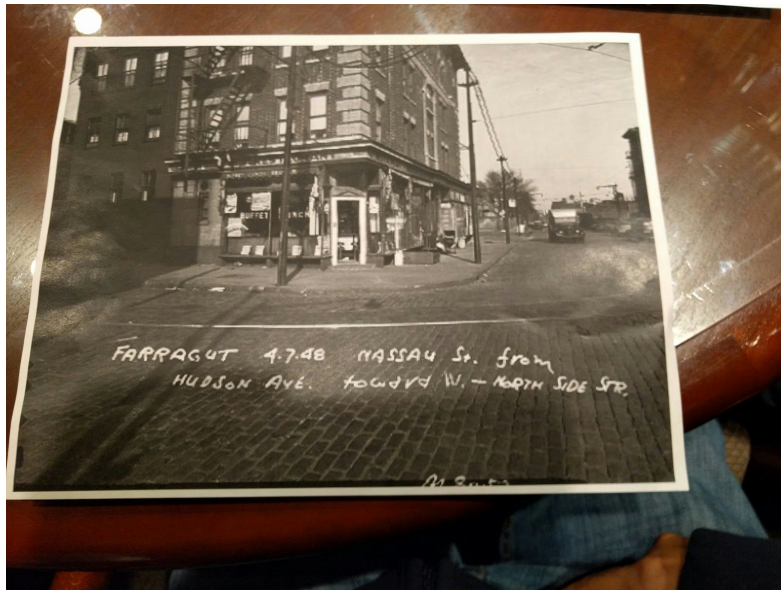 BUFFET LUNCH
FARRAGUT 4.7.48 NASSAU St. from
HUDSON AVE. toward W. – NORTH SIDE STR.